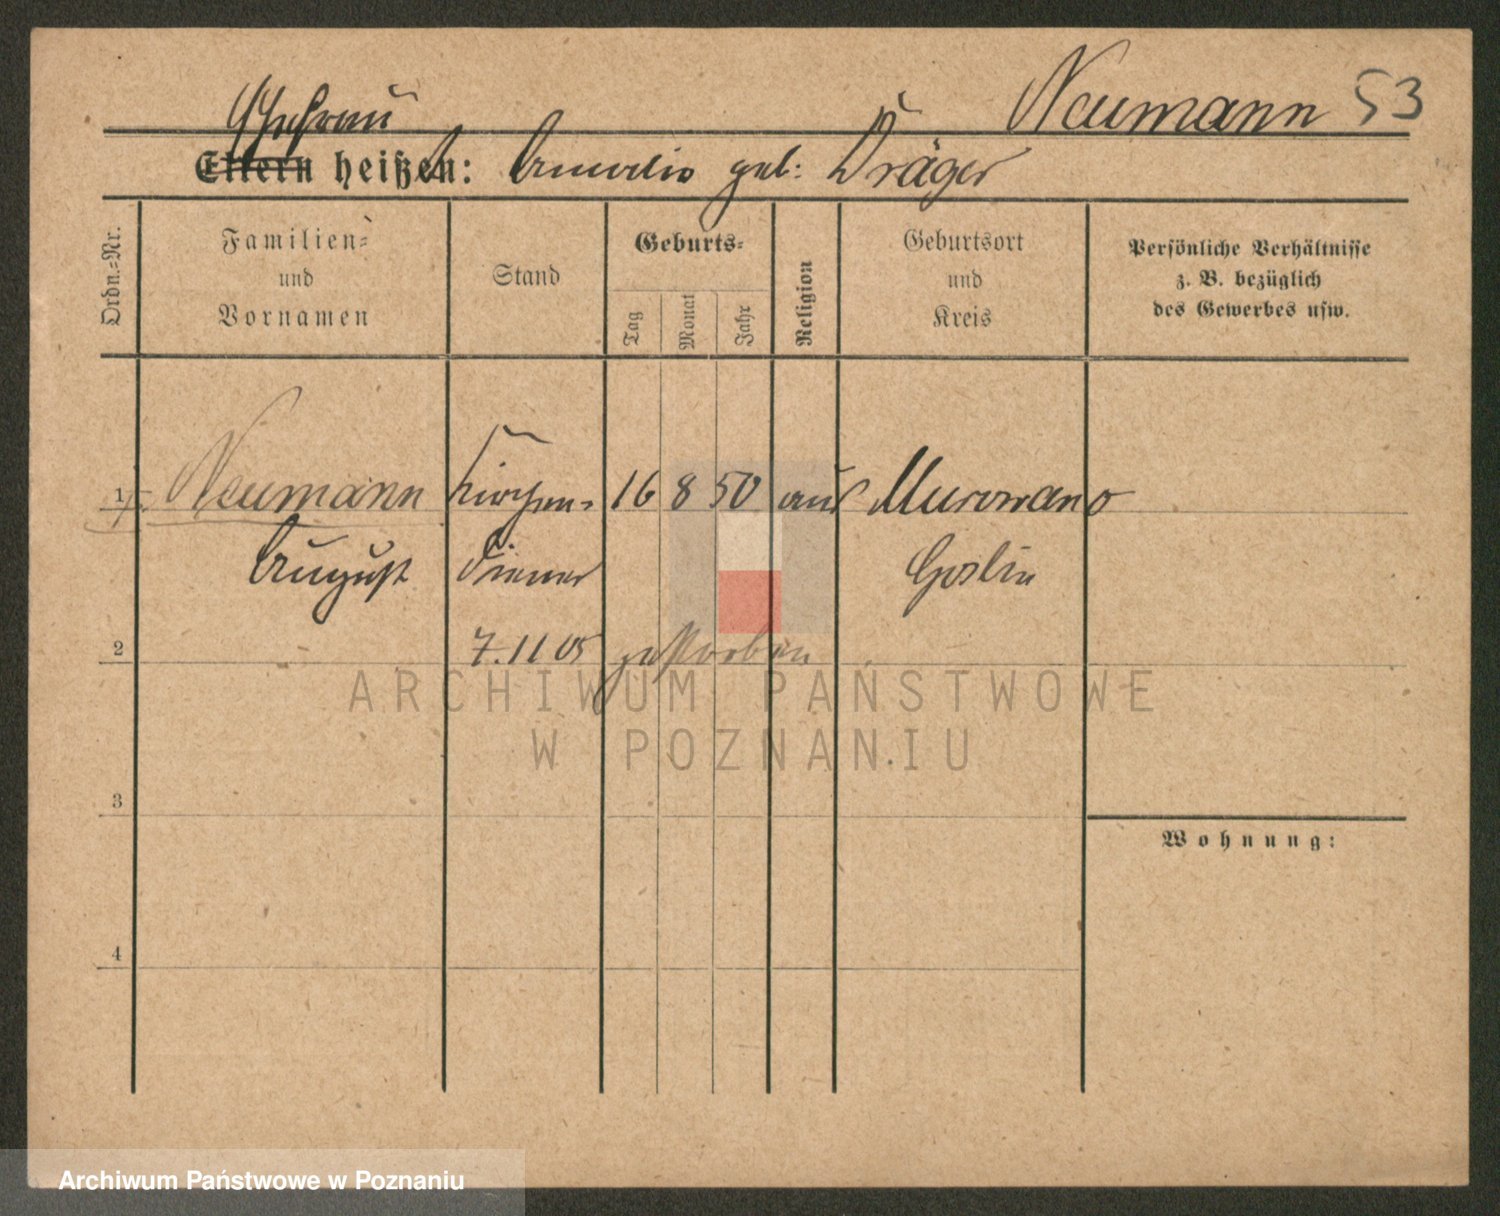 Neumann 53
Ehefrau
Eltern heißen: Amalie geb: Dräger
Ordn.-Nr.
Familien-
und
Vornamen
Stand
Geburts-
Tag
Monat
Jahr
Religion
Geburtsort
und
Kreis
Persönliche Verhältnisse
z. B. bezüglich
des Gewerbes usw.
1 Neumann Kirchen- 16 8 50 Murowano
August diener Goslin
2 7.11 05 gestorben
ARCHIWUM PAŃSTWOWE
W POZNANIU
3
Wohnung:
4
Archiwum Państwowe w Poznaniu